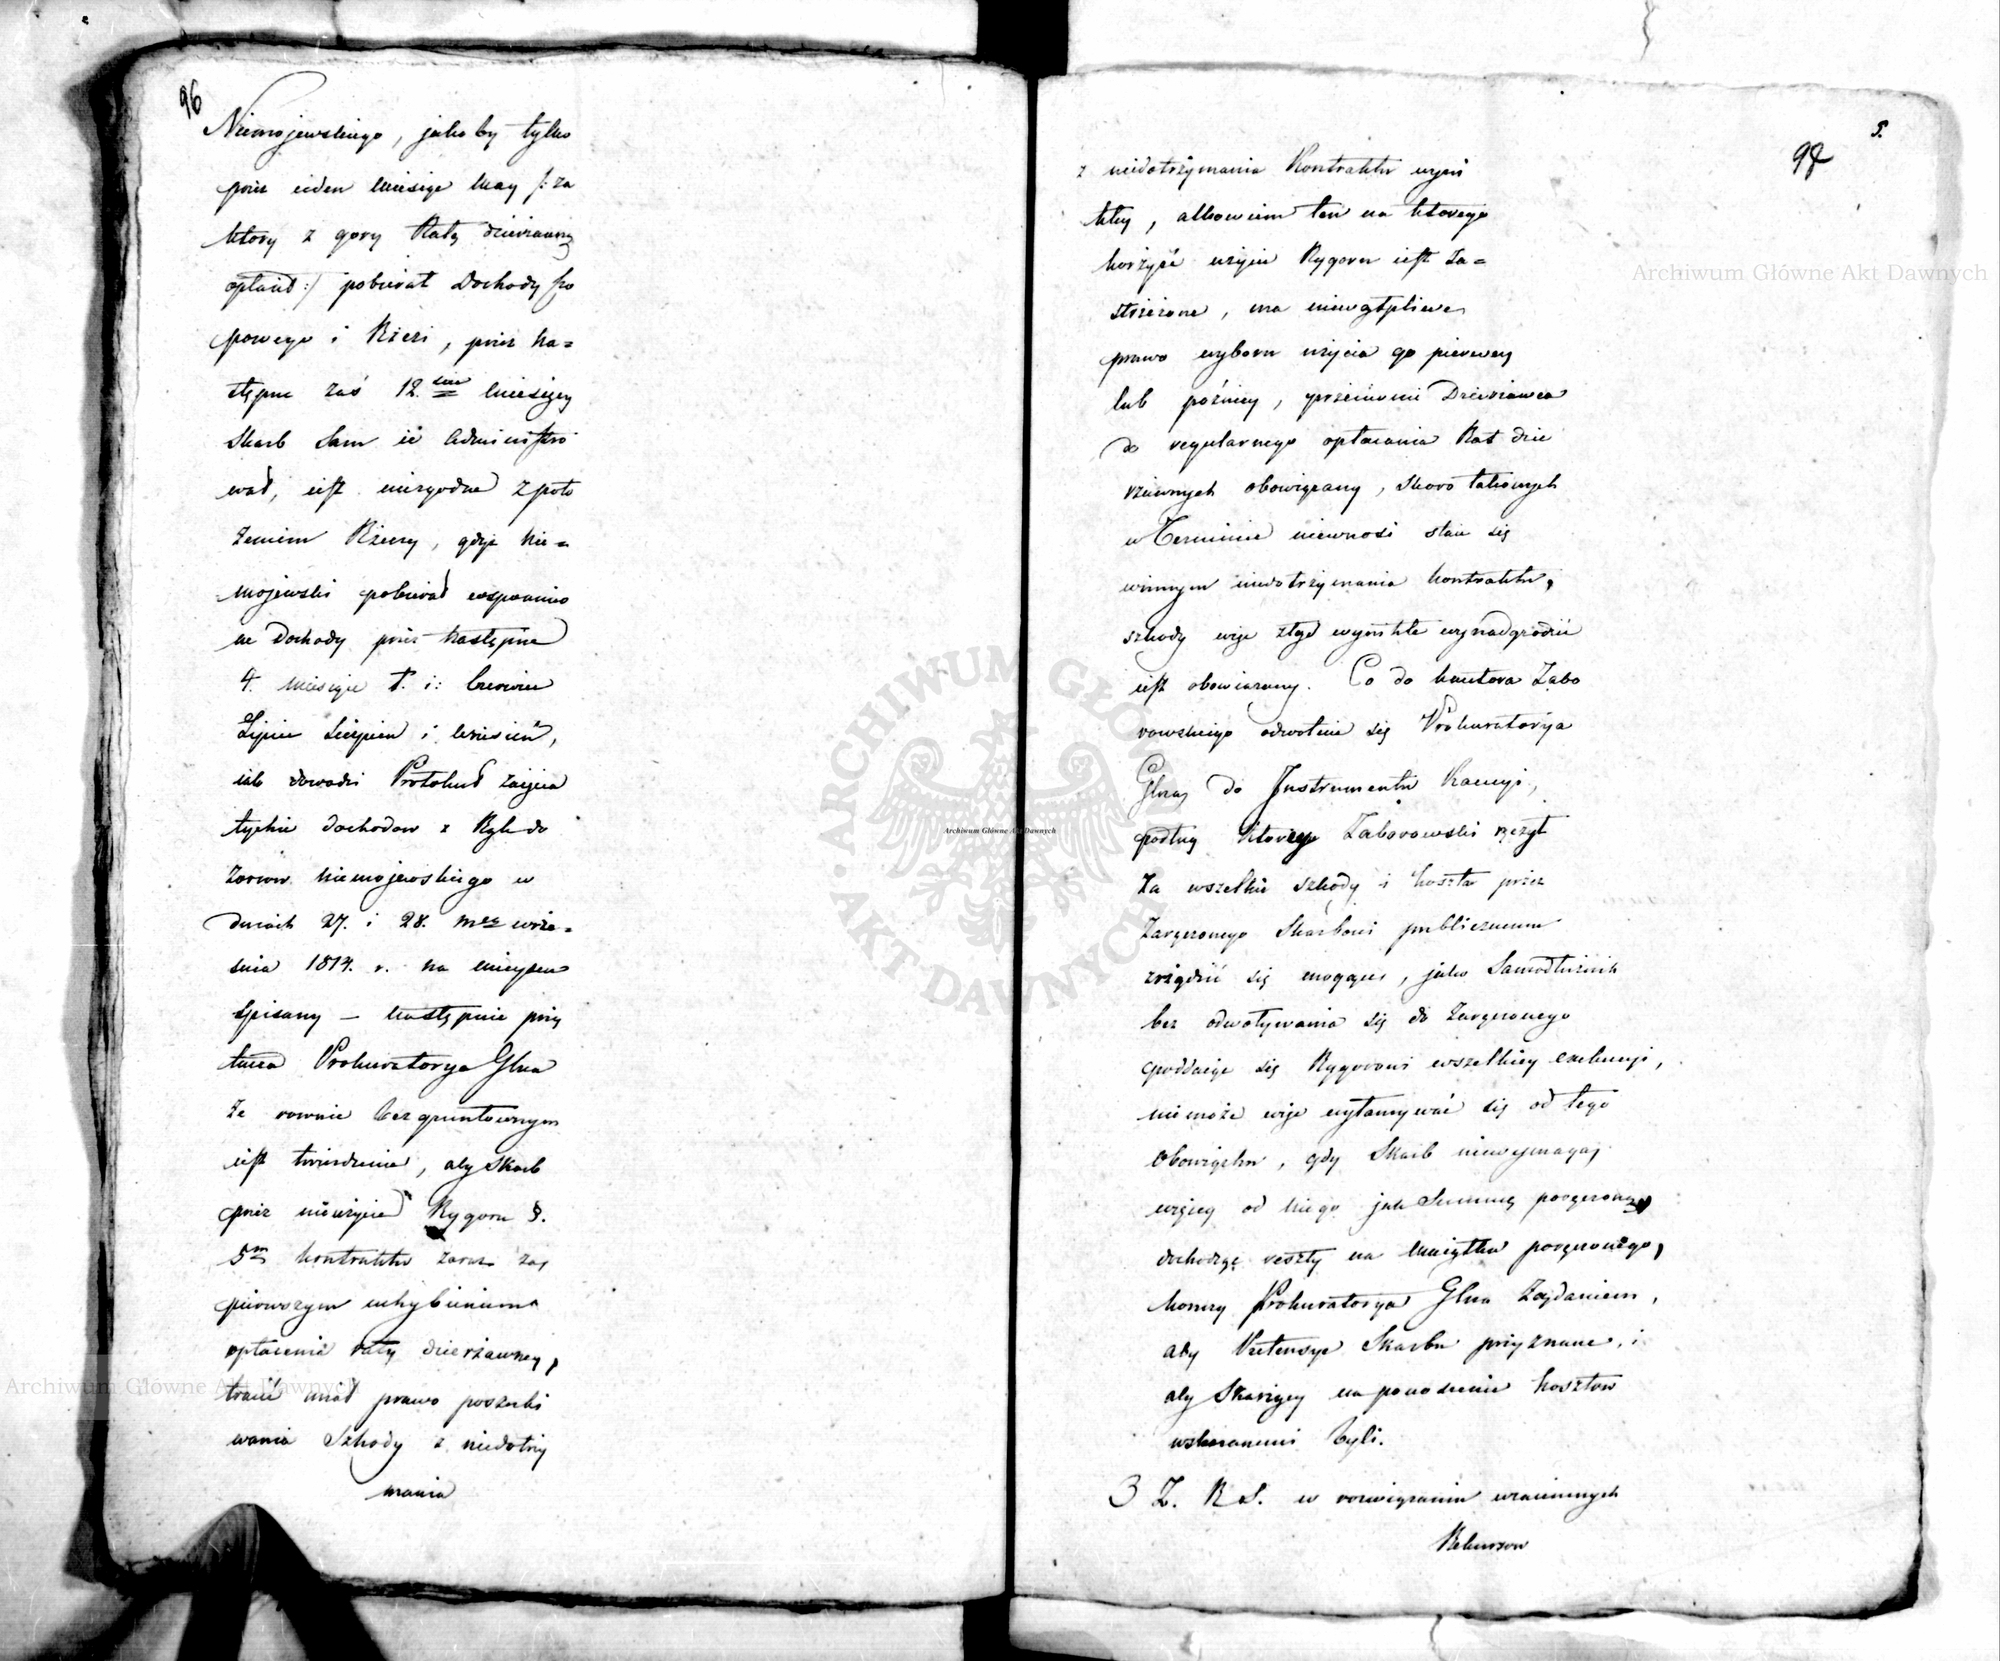 96
Niemojewskiego, jakoby tylko
przez ieden Miesiąc May /: za
ktory z gory Ratę dzierżawną
opłacił :/ pobierał Dochody ko
powego i Rzezi, przez na=
stępne zaś 12. sm Miesięcy
Skarb Sam ie Administro
wał, iest niezgodne z poło
żeniem Rzeczy, gdyż Nie=
mojewski pobierał wspomnio
ne Dochody przez następne
4. Miesiące t. i: Czerwiec
Lipiec Sierpień i Wrzesień,
iak dowodzi Protokuł zaięcia
tychże dochodow z Rąk do
zorcow Niemojewskiego w
dniach 27. i 28. Mca Wrze=
śnia 1814. r. na mieyscu
spisany — następnie przy
tacza Prokuratorya Glna
że rownie bezgruntownym
iest twierdzenie, aby Skarb
przez nieużycie Rygoru §.
5m kontraktu zaraz za
pierwszym uchybieniem
opłacenia raty dzierżawney,
tracić miał prawo poszuki
wania Szkody z niedotrzy
mania
5.
97
z niedotrzymania Kontraktu wyni
kłey, albowiem ten na ktorego
korzyść użycie Rygoru iest za=
strzeżone, ma niewątpliwe
prawo wyboru użycia go pierwey
lub pożniey, przeciwnie Dzierżawca
do regularnego opłacania Rat dzie
rżawnych obowiązany, skoro takowych
w Terminie niewnosi staie się
winnym niedotrzymania kontraktu,
szkody więc ztąd wynikłe wynadgrodzić
iest obowiązany. Co do kautora Zabo
rowskiego odwołuie się Prokuratorya
Glna do Instrumentu Kaucyi,
podług ktorego Zaborowski ręczył
za wszelkie szkody i koszta przez
Zaręczonego Skarbowi publicznemu
zrządzić się mogące, jako Samodłużnik
bez odwoływania się do Zaręczonego
poddaiąc się Rygorowi wszelkiey exekucyi,
nie może więc wyłamywać się od tego
Obowiązku, gdy Skarb niewymagaj
więcey od niego jak Summę poręczoną
dochodzę reszty na Maiątku poręczonego,
konczy Prokuratorya Glna Żądaniem,
aby Pretensye Skarbu przyznane, i
aby Skarżący na ponoszenie kosztow
wskazanemi byli.
3 Z. R S. w rozwiązaniu wzaiemnych
Rekursow
Archiwum Główne Akt Dawnych
Archiwum Główne Akt Dawnych
Archiwum Główne Akt Dawnych
ARCHIWUM GŁÓWNE AKT DAWNYCH